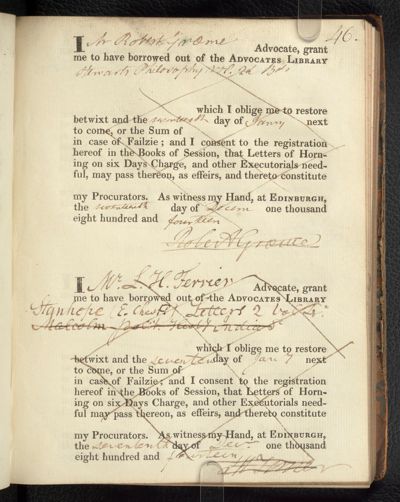 46.
I Mr Robert Græme Advocate, grant
me to have borrowed out of the ADVOCATES LIBRARY
Stewarts Philosophy Vol. 2d
which I oblige me to restore
betwixt and the seventeenth day of Janry next
to come, or the Sum of
in case of Failzie; and I consent to the registration
hereof in the Books of Session, that Letters of Horn-
ing on six Days Charge, and other Executorials need-
ful, may pass thereon, as effeirs, and thereto constitute
my Procurators. As witness my Hand, at EDINBURGH,
the seventeenth day of Decem one thousand
eight hundred and fourteen
Robert Græme
I Mr L. H. Ferrier Advocate, grant
me to have borrowed out of the ADVOCATES LIBRARY
Stanhope (E. Chestfd) Letters 2 vols.
Malcolm India
which I oblige me to restore
betwixt and the seventeen day of Jany next
to come, or the Sum of
in case of Failzie; and I consent to the registration
hereof in the Books of Session, that Letters of Horn-
ing on six Days Charge, and other Executorials need-
ful may pass thereon, as effeirs, and thereto constitute
my Procurators. As witness my Hand, at EDINBURGH,
the seventeenth day of Decr one thousand
eight hundred and fourteen